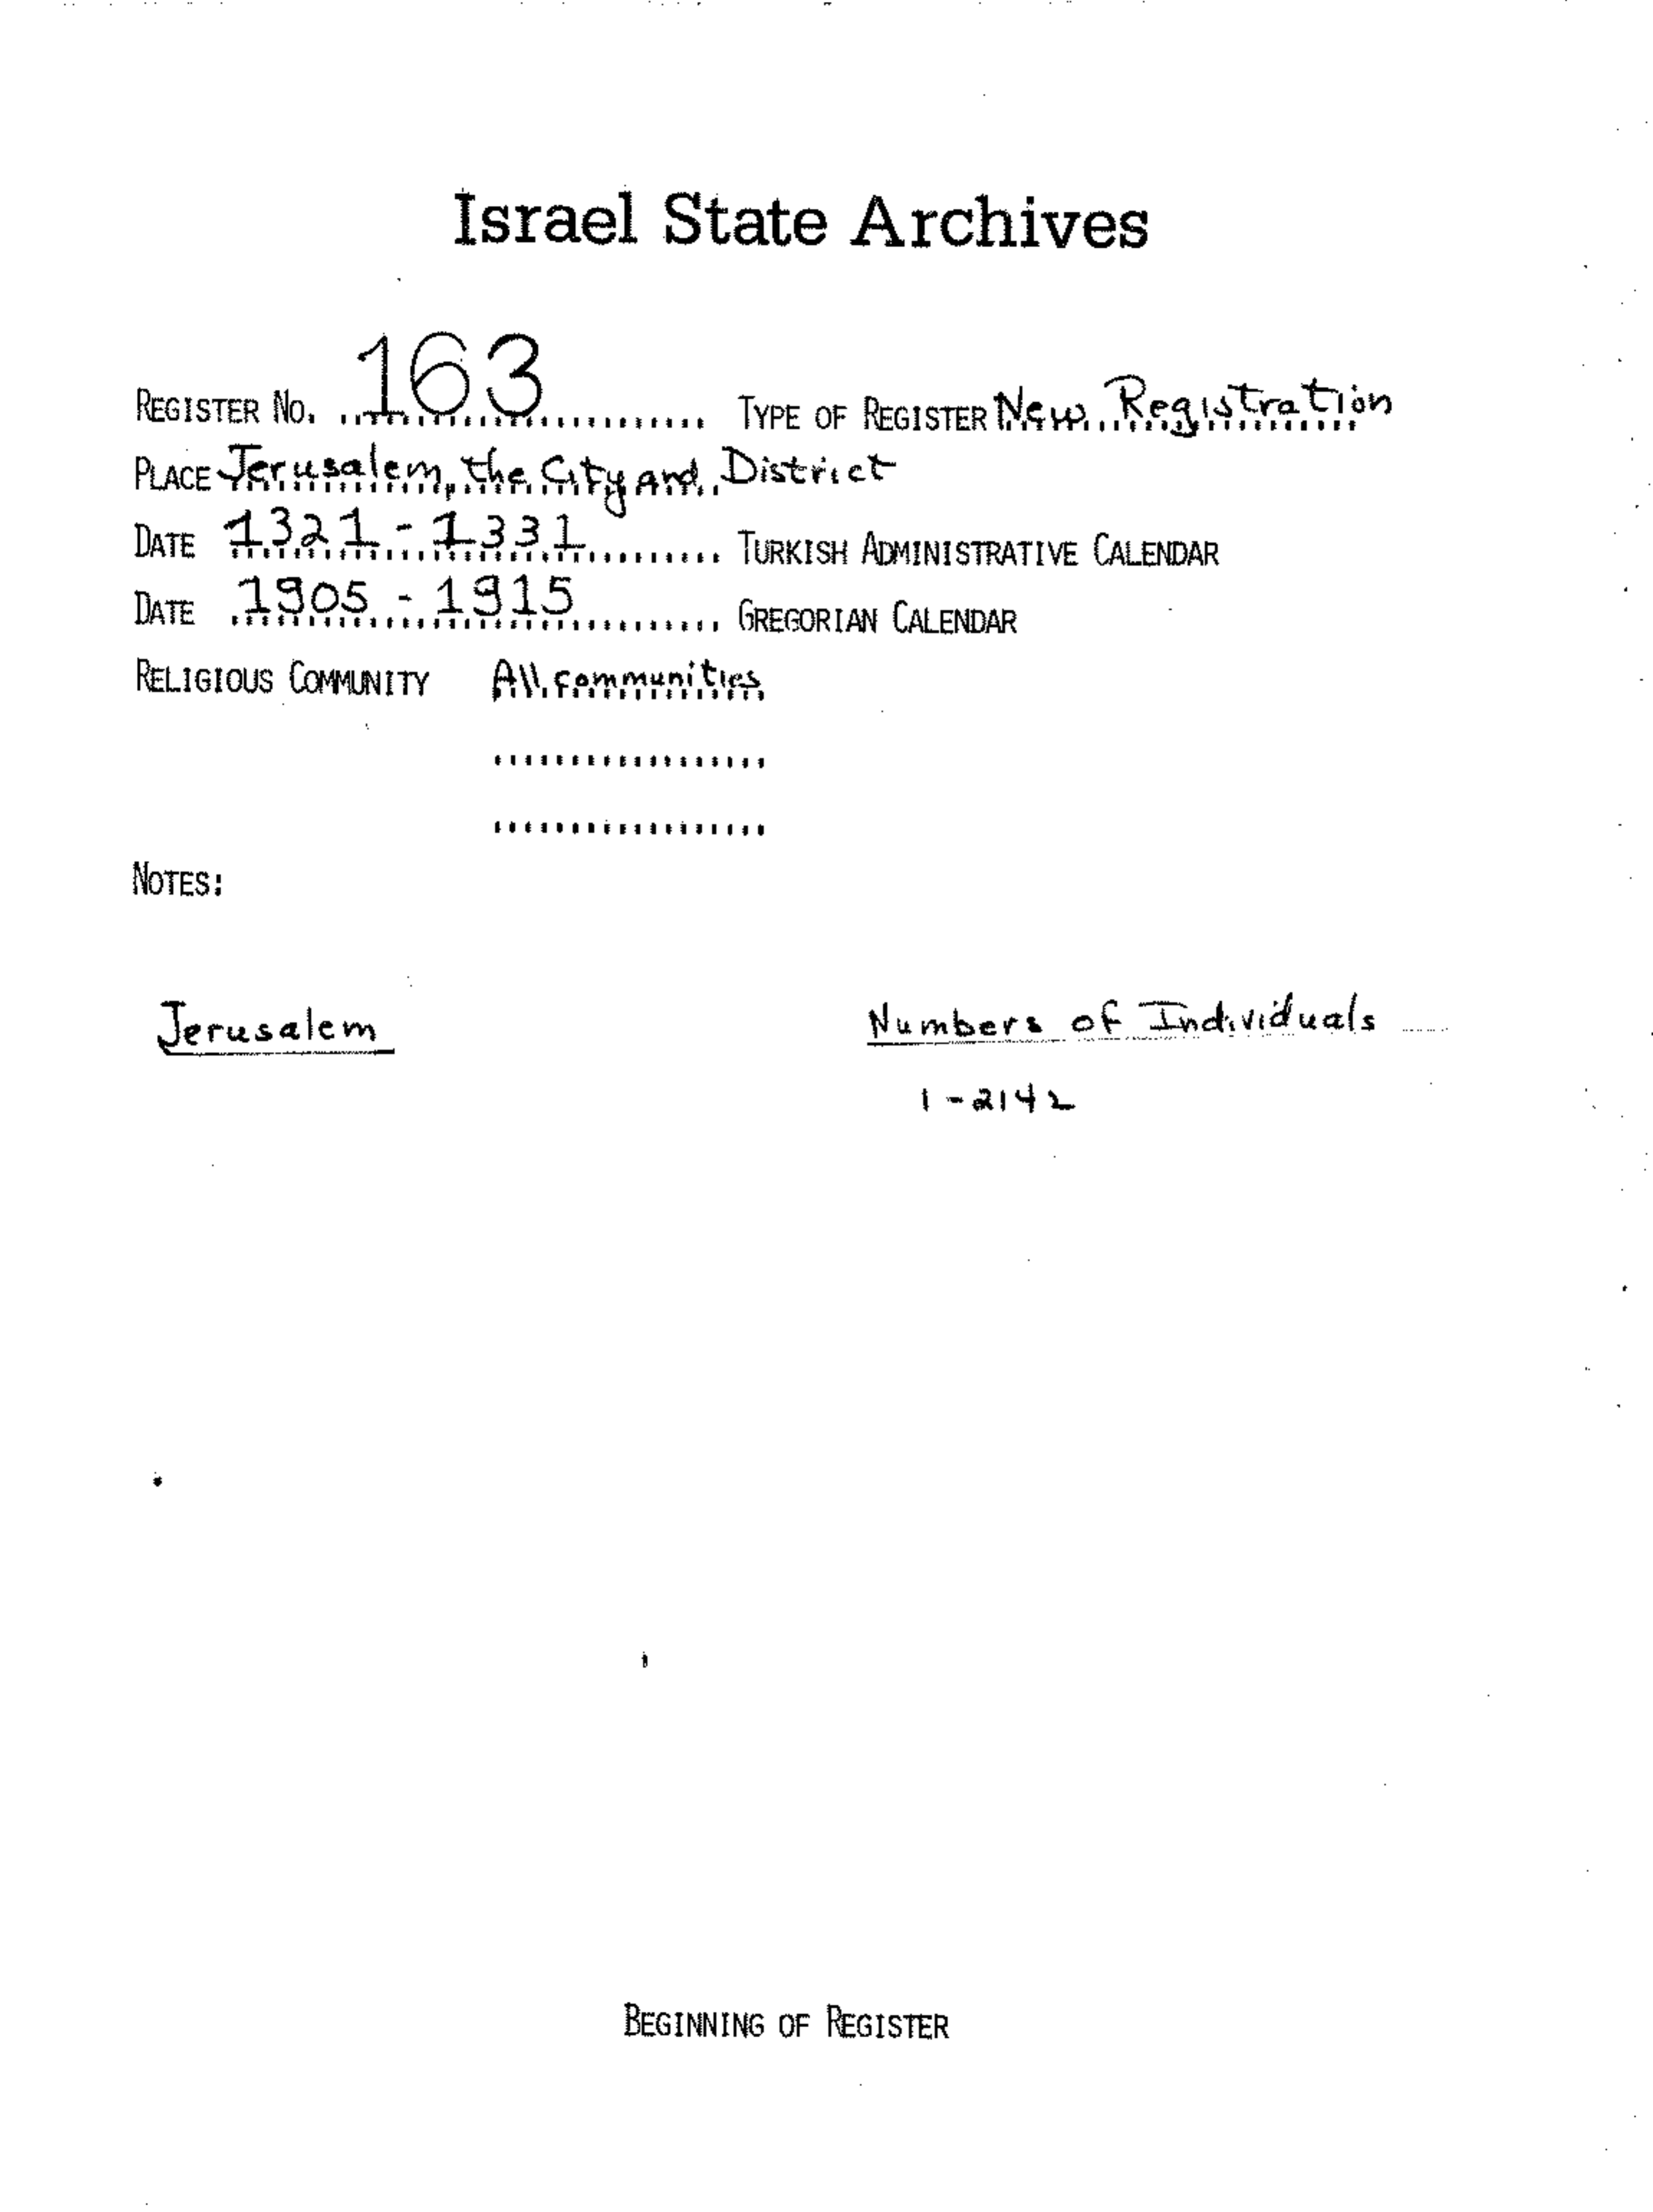 Israel State Archives
REGISTER NO. 163 TYPE OF REGISTER New Registration
PLACE Jerusalem, the City and District
DATE 1321 - 1331 TURKISH ADMINISTRATIVE CALENDAR
DATE 1905 - 1915 GREGORIAN CALENDAR
RELIGIOUS COMMUNITY All communities
NOTES:
Jerusalem Numbers of Individuals
1 - 2142
BEGINNING OF REGISTER